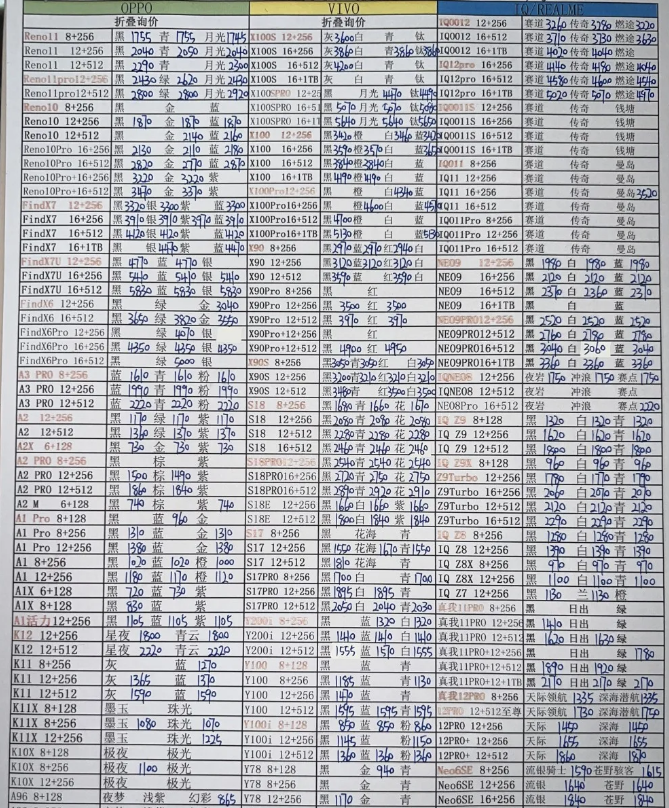 OPPO
折叠询价
Reno11 8+256 黑 1755 青 1755 月光 1745
Reno11 12+256 黑 2040 青 2050 月光 2040
Reno11 12+512 黑 2290 青 月光 2300
Reno11pro12+256 黑 2430 绿 2620 月光 2430
Reno11pro12+512 黑 2800 绿 2800 月光 2920
Reno10 8+256 黑 金 蓝
Reno10 12+256 黑 1870 金 1870 蓝 1870
Reno10 12+512 黑 金 2140 蓝 2160
Reno10Pro 16+256 黑 2130 金 2110 蓝 2180
Reno10Pro 16+512 黑 2820 金 2770 蓝 2870
Reno10Pro+16+256 黑 3220 金 3220 紫
Reno10Pro+16+512 黑 3470 金 3370 紫
FindX7 12+256 黑 3320 银 3300 紫 蓝 3300
FindX7 16+256 黑 3910 银 3910 紫 3970 蓝 3910
FindX7 16+512 黑 4120 银 4120 紫 蓝 4120
FindX7 16+1TB 黑 银 4470 紫 蓝 4470
FindX7U 12+256 黑 4770 蓝 4770 银
FindX7U 16+512 黑 5410 蓝 5410 银 5410
FindX7U 16+512 黑 5830 蓝 5830 银 5830
FindX6 12+256 黑 绿 金 3040
FindX6 16+512 黑 3650 绿 3820 金 3550
FindX6Pro 12+256 黑 绿 4070 银
FindX6Pro 16+256 黑 4350 绿 4350 银 4350
FindX6Pro 16+512 黑 绿 5000 银
A3 PRO 8+256 蓝 1610 青 1610 粉 1610
A3 PRO 12+256 蓝 1990 青 1990 粉 1990
A3 PRO 12+512 蓝 2220 青 2220 粉 2220
A2 12+256 黑 1170 绿 1170 紫 1170
A2 12+512 黑 1360 绿 1370 紫 1370
A2X 6+128 黑 730 金 730 紫 730
A2 PRO 8+256 黑 棕 紫
A2 PRO 12+256 黑 1500 棕 1490 紫
A2 PRO 12+512 黑 1860 棕 1840 紫
A2 M 6+128 黑 740 棕 紫 740
A1 Pro 8+128 黑 蓝 960 金
A1 Pro 8+256 黑 1310 蓝 金 1310
A1 Pro 12+256 黑 1380 蓝 金 1380
A1 8+256 黑 1020 蓝 1020 橙 1000
A1 12+256 黑 1180 蓝 1170 橙 1120
A1X 6+128 黑 720 蓝 730 紫
A1X 8+128 黑 830 蓝 紫
A1活力12+256 黑 1105 蓝 1105 紫 1105
K12 12+256 星夜 1800 青云 1800
K12 12+512 星夜 2220 青云 2220
K11 8+256 灰 蓝 1270
K11 12+256 灰 1365 蓝 1370
K11 12+512 灰 1590 蓝 1590
K11X 8+128 墨玉 珠光
K11X 8+256 墨玉 1080 珠光 1070
K11X 12+256 墨玉 珠光 1225
K10X 8+128 极夜 极光
K10X 8+256 极夜 1100 极光
K10X 12+256 极夜 极光
A96 8+128 夜梦 浅紫 幻彩 865
VIVO
折叠询价
X100S 12+256 灰 3600 白 青 钛
X100S 16+256 灰 3860 白 青 3860 钛 3860
X100S 16+512 灰 4200 白 青 钛
X100S 16+1TB 灰 白 青 钛
X100SPRO 黑 月光 4470 钛
X100SPRO 黑 5070 月光 5070 钛
X100SPRO 黑 5640 月光 5640 钛
X100 12+256 黑 3420 橙 白 3460 蓝
X100 16+256 黑 3590 橙 3570 白 蓝
X100 16+512 黑 3840 橙 3840 白 蓝
X100 16+1TB 黑 4190 橙 4190 白 蓝
X100Pro12+256 黑 橙 白 4340 蓝
X100Pro16+256 黑 橙 4600 白 蓝
X100Pro16+512 黑 4700 橙 白 蓝
X100Pro16+1TB 黑 5130 橙 白 蓝
X90 8+256 黑 2970 蓝 2970 红 2940 白
X90 12+256 黑 3120 蓝 3120 红 3120 白
X90 12+512 黑 3590 蓝 红 3590 白
X90Pro 8+256 黑 红
X90Pro 12+256 黑 3500 红 3500
X90Pro 12+512 黑 3970 红 3970
X90Pro+12+256 黑 红
X90Pro+12+512 黑 4900 红 4950
X90S 8+256 黑 3050 青 3050 红 白 3050
X90S 12+256 黑 3200 青 3210 红 3210 白 3210
X90S 12+512 黑 3480 青 红 3500 白 3500
S18 8+256 黑 1680 青 1660 花 1670
S18 12+256 黑 2080 青 2080 花 2080
S18 12+512 黑 2280 青 2280 花 2280
S18 16+512 黑 2460 青 2460 花 2460
S18PRO12+256 黑 2540 青 2540 花 2540
S18PRO16+256 黑 2720 青 2750 花 2750
S18PRO16+512 黑 2890 青 2920 花 2910
S18E 12+256 黑 1660 白 1660 紫 1660
S18E 12+512 黑 1800 白 1840 紫 1840
S17 8+256 黑 花海 青
S17 12+256 黑 1550 花海 1670 青 1550
S17 12+512 黑 1810 花海 青
S17PRO 8+256 黑 1700 白 青 1700
S17PRO 12+256 黑 1895 白 1895 青
S17PRO 12+512 黑 2050 白 2040 青 2030
Y200i 8+256 黑 蓝 1320 白 1320
Y200i 12+256 黑 1440 蓝 1410 白 1440
Y200i 12+512 黑 1555 蓝 1570 白 1555
Y100 8+128 黑 蓝 青
Y100 8+256 黑 1185 蓝 青 1130
Y100 12+256 黑 1470 蓝 青
Y100 12+512 黑 1595 蓝 1595 青 1595
Y100i 8+256 黑 850 蓝 850 粉 860
Y100i 12+256 黑 1145 蓝 粉 1150
Y100i 12+512 黑 1360 蓝 1360 粉 1360
Y78 8+256 黑 金 940 青
Y78 12+256 黑 1170 金 青
IQ/REALME
IQOO12 12+256 赛道 3260 传奇 3280 燃途 3220
IQOO12 16+512 赛道 3710 传奇 3730 燃途 3630
IQOO12 16+1TB 赛道 4020 传奇 4040 燃途
IQ12pro 16+256 赛道 4140 传奇 4180 燃途 4040
IQ12pro 16+512 赛道 4580 传奇 4600 燃途 4540
IQ12pro 16+1TB 赛道 5020 传奇 5070 燃途 4970
IQOO11S 12+256 赛道 传奇 钱塘
IQOO11S 16+256 赛道 传奇 钱塘
IQOO11S 16+512 赛道 传奇 钱塘
IQOO11S 16+1TB 赛道 传奇 钱塘
IQ011 8+256 赛道 传奇 曼岛
IQ11 12+256 赛道 传奇 曼岛
IQ11 16+256 赛道 传奇 曼岛 3520
IQ11 16+512 赛道 传奇 曼岛
IQ011Pro 8+256 赛道 传奇 曼岛
IQ011Pro 16+256 赛道 传奇 曼岛
IQ011Pro 16+512 赛道 传奇 曼岛
NEO9 12+256 黑 1980 白 1980 蓝 1980
NEO9 16+256 黑 2120 白 2120 蓝 2120
NEO9 16+512 黑 2370 白 2360 蓝 2370
NEO9 16+1TB 黑 白 蓝
NEO9PRO12+256 黑 2520 白 2520 蓝 2520
NEO9PRO12+512 黑 2760 白 2780 蓝 2780
NEO9PRO16+512 黑 3040 白 3060 蓝 3040
NEO9PRO16+1TB 黑 3360 白 3360 蓝 3360
IQNEO8 12+256 夜岩 1750 冲浪 1750 赛点 1750
IQNEO8 12+512 夜岩 冲浪 赛点
NEO8Pro 16+512 夜岩 冲浪 赛点 2220
IQ Z9 8+256 黑 1320 白 1320 青 1320
IQ Z9 12+256 黑 1620 白 1620 青 1620
IQ Z9 12+512 黑 1800 白 1800 青 1800
IQ Z9X 8+256 黑 960 白 960 青 960
Z9Turbo 12+256 黑 1780 白 1770 青 1790
Z9Turbo 16+256 黑 2060 白 2070 青 2070
Z9Turbo 12+512 黑 2120 白 2120 青 2120
Z9Turbo 16+512 黑 2290 白 2290 青 2290
IQ Z8 8+256 黑 1280 白 1280 青 1280
IQ Z8 12+256 黑 1390 白 1390 青 1390
IQ Z8X 8+256 黑 970 白 970 青 970
IQ Z8X 12+256 黑 1100 白 1100 青 1100
IQ Z7 12+256 黑 1130 兰 1130 橙
真我11PRO 8+256 黑 日出 绿
真我11PRO 12+256 黑 1410 日出 绿
真我11PRO 12+512 黑 1620 日出 1630 绿
真我11PRO+12+256 黑 日出 绿 1780
真我11PRO+12+512 黑 1890 日出 1920 绿
真我11PRO+12+1TB 黑 2170 日出 2170 绿 2170
真我12PRO 8+256 天际领航 1335 深海潜航 1335
12PRO 12+512至尊 天际领航 1730 深海潜航 1750
12PRO 12+256 天际 1450 深海 1450
12PRO+ 12+256 天际 1655 深海 1655
12PRO+ 12+512 天际 1860 深海 1870
Neo6SE 8+256 流银骑士 1590 苍野骇客 1615
Neo6SE 12+256 流银 1640 苍野 1640
Neo6SE 16+256 流银 1840 苍野 1840